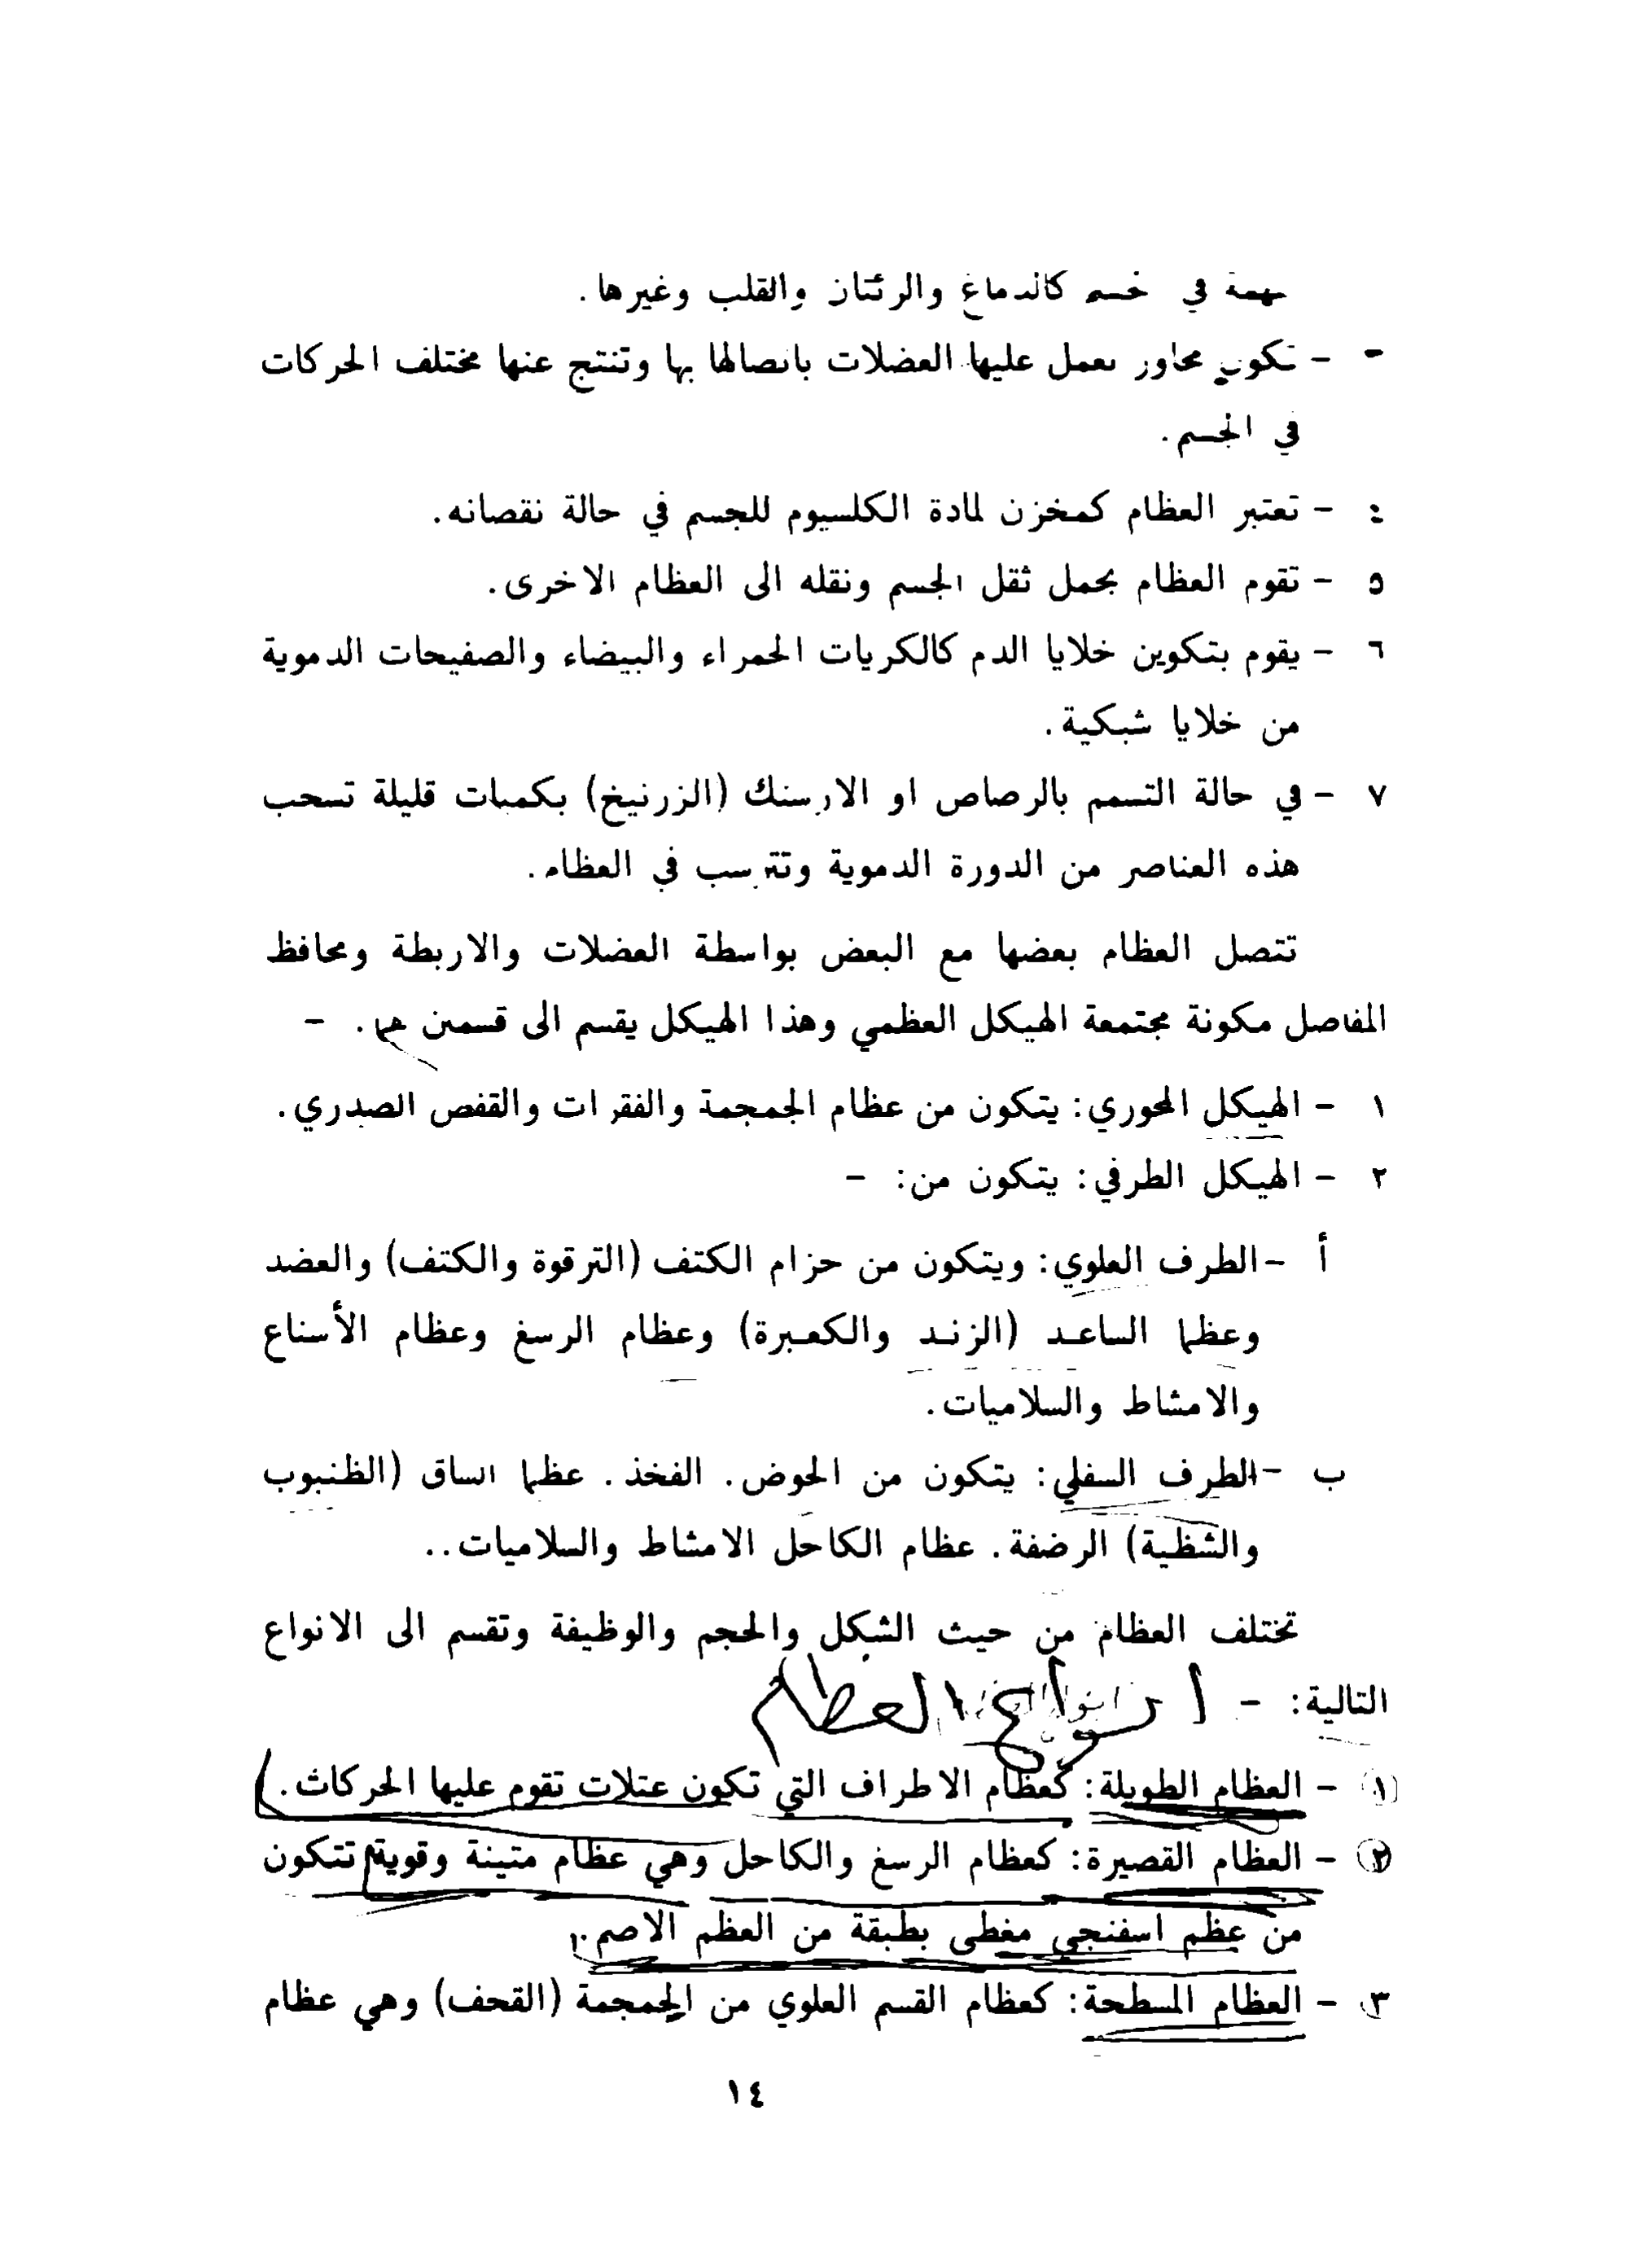 مهمة في الجسم كالدماغ والرئتان والقلب وغيرها.
- تكون محاور تعمل عليها العضلات باتصالها بها وتنتج عنها مختلف الحركات
في الجسم.
٤ - تعتبر العظام كمخزن لمادة الكلسيوم للجسم في حالة نقصانه.
٥ - تقوم العظام بحمل ثقل الجسم ونقله الى العظام الاخرى.
٦ - يقوم بتكوين خلايا الدم كالكريات الحمراء والبيضاء والصفيحات الدموية
من خلايا شبكية.
٧ - في حالة التسمم بالرصاص او الارسنك (الزرنيخ) بكميات قليلة تسحب
هذه العناصر من الدورة الدموية وتترسب في العظام.
تتصل العظام بعضها مع البعض بواسطة العضلات والاربطة ومحافظ
المفاصل مكونة مجتمعة الهيكل العظمي وهذا الهيكل يقسم الى قسمين هما. -
١ - الهيكل المحوري: يتكون من عظام الجمجمة والفقرات والقفص الصدري.
٢ - الهيكل الطرفي: يتكون من: -
أ - الطرف العلوي: ويتكون من حزام الكتف (الترقوة والكتف) والعضد
وعظما الساعد (الزند والكعبرة) وعظام الرسغ وعظام الأسناع
والامشاط والسلاميات.
ب - الطرف السفلي: يتكون من الحوض. الفخذ. عظما الساق (الظنبوب
والشظية) الرضفة. عظام الكاحل الامشاط والسلاميات..
تختلف العظام من حيث الشكل والحجم والوظيفة وتقسم الى الانواع
التالية: - انواع العظام
١ - العظام الطويلة: كعظام الاطراف التي تكون عتلات تقوم عليها الحركات.
٢ - العظام القصيرة: كعظام الرسغ والكاحل وهي عظام متينة وقوية تتكون
من عظم اسفنجي مغطى بطبقة من العظم الاصم.
٣ - العظام المسطحة: كعظام القسم العلوي من الجمجمة (القحف) وهي عظام
١٤